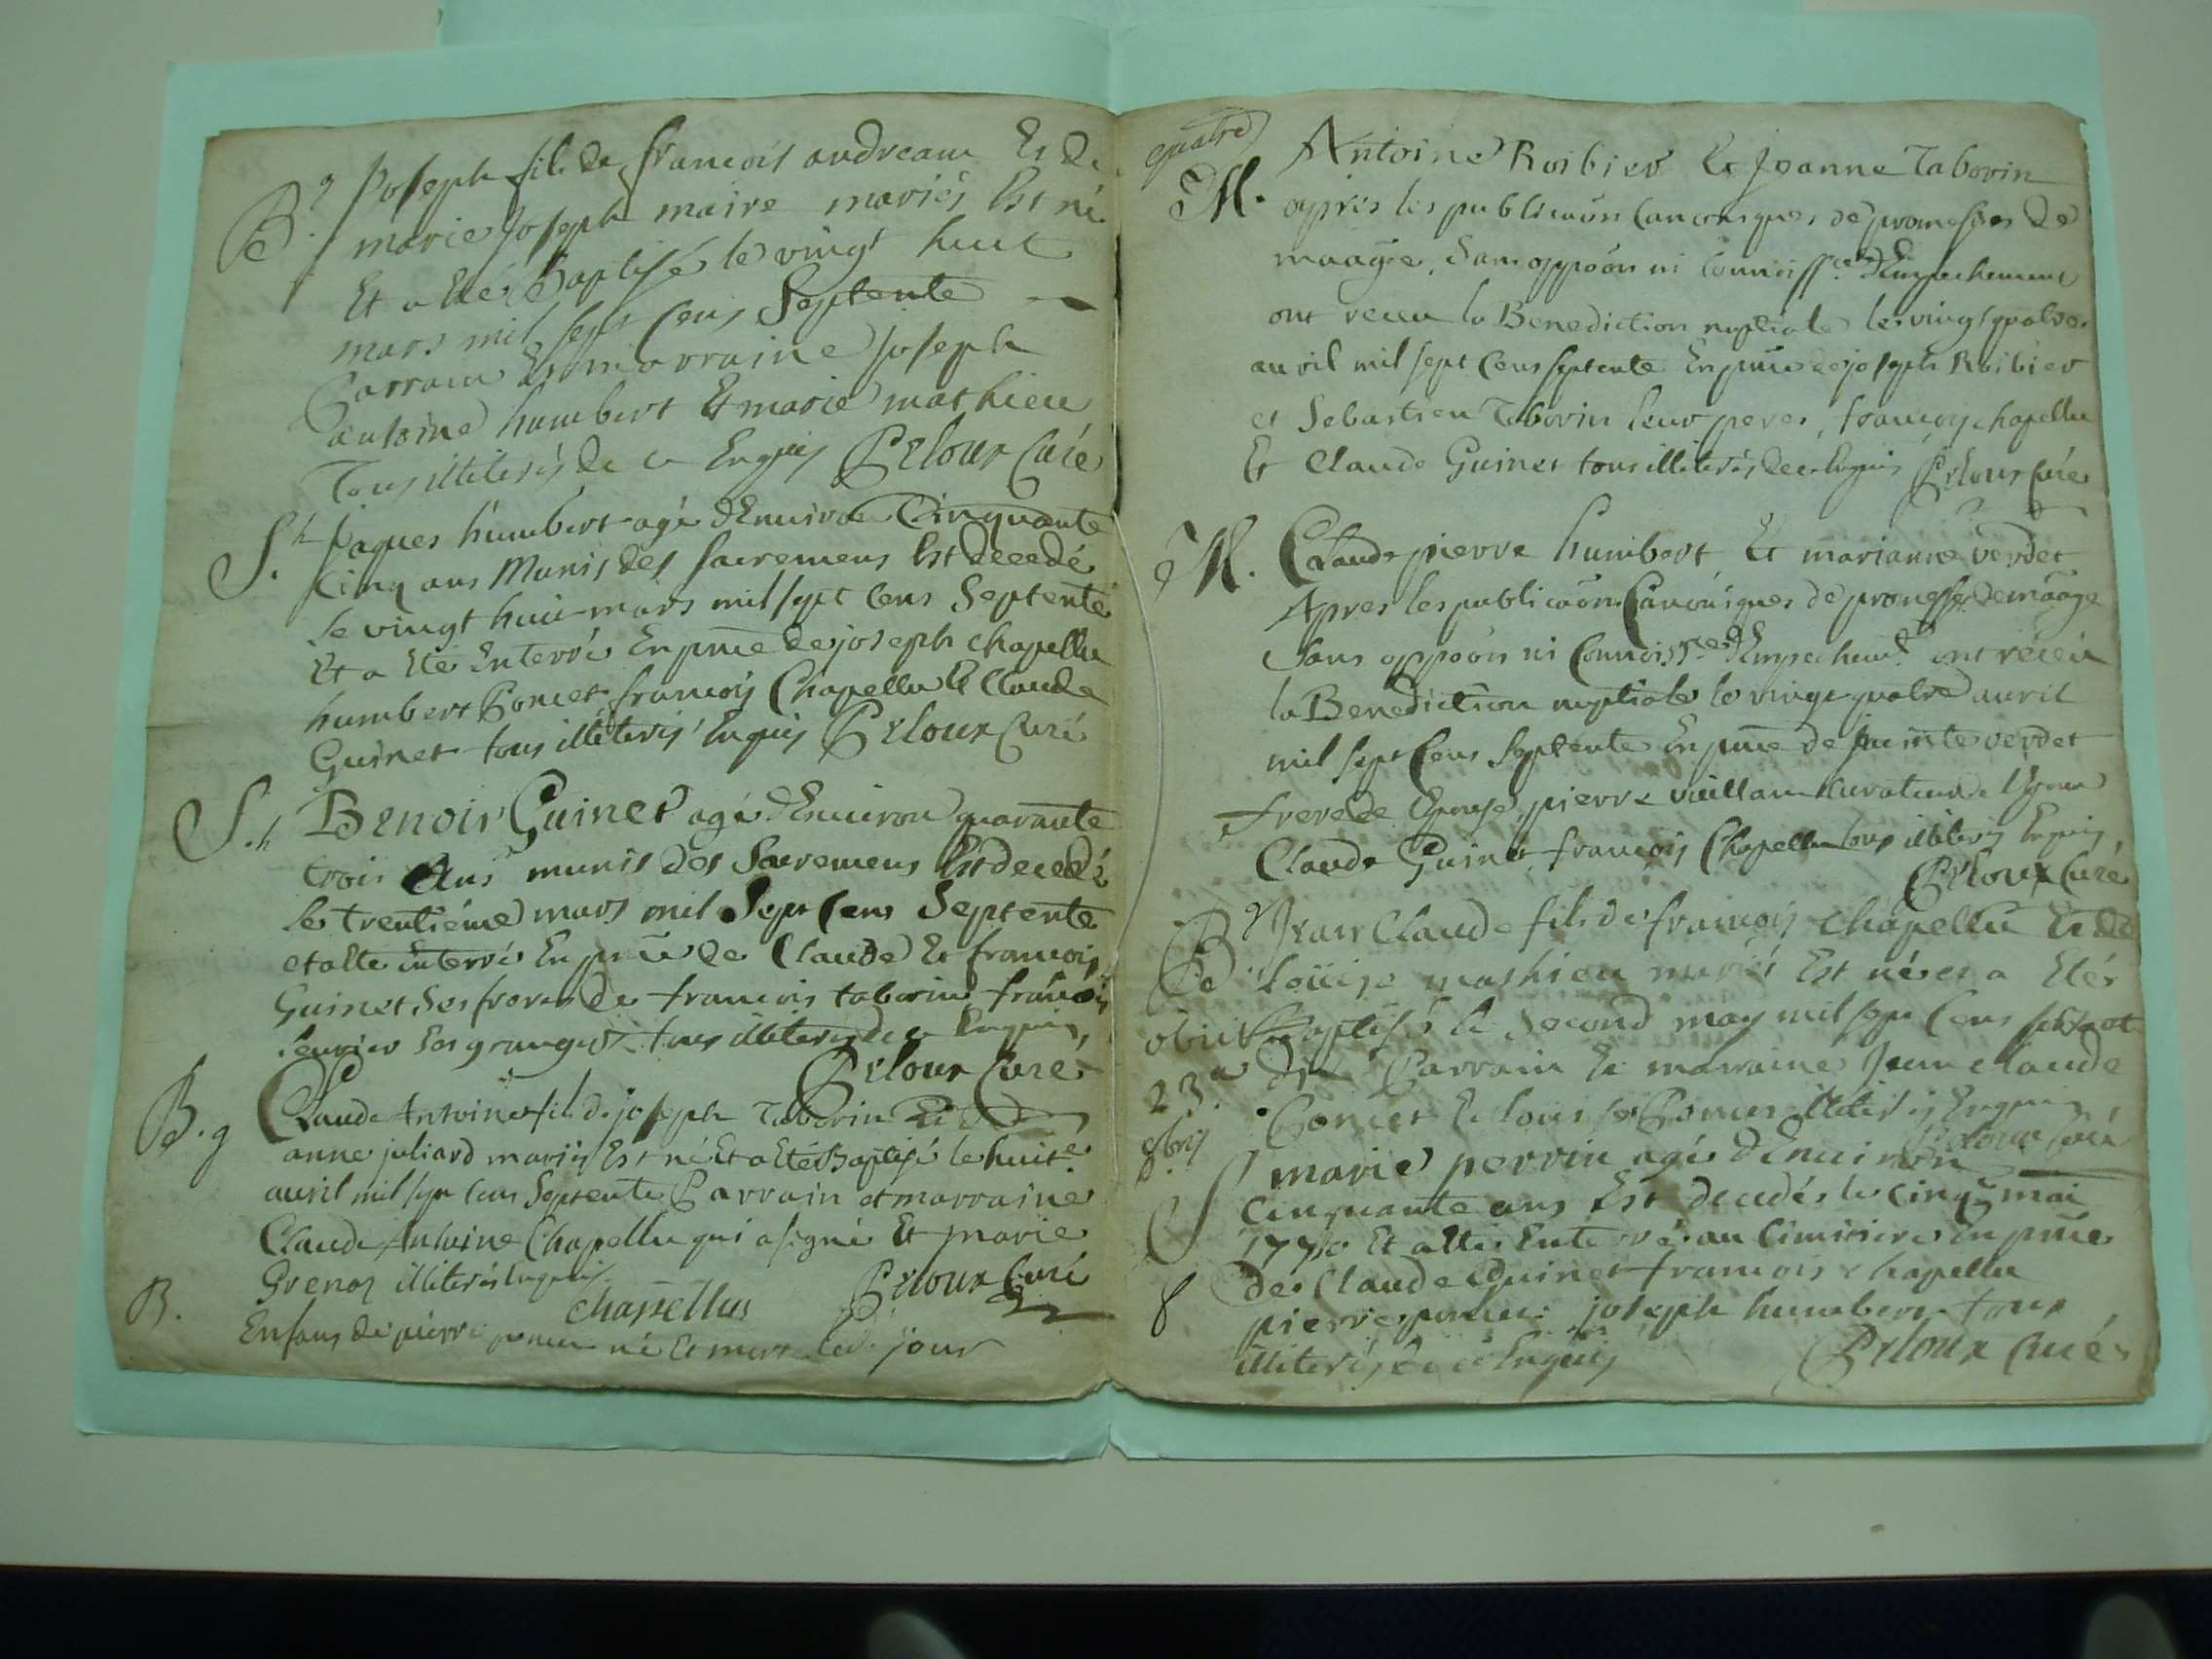 B. g Joseph fils de francois andreau Et de
marie Joseph maire mariés Est né
Et a Eté Baptisé le vingt huit
mars mil sept Cens Septente
Parrain Et marraine Joseph
antoine humbert Et marie mathieu
Tous illiterés de ce Enquis Peloux Curé
S. h Jaques humbert agé d'Environ Cinquante
Cinq ans Munis des sacremens Est decedé
le vingt huit mars mil sept Cens Septente
Et a Eté Enterré En pnce de joseph Chapellu
humbert Poncet francois Chapellu Et Claude
Guinet tous illiterés Enquis Peloux Curé
S. h Benoit Guinet agé d'Environ quarante
trois Ans munis des Sacremens Est decedé
le trentiéme mars mil Sept Cens Septente
et a Eté Enterré En pnce de Claude Et francois
Guinet Ses freres de francois taborin francois
ses granger tous illiterés de ce Enquis
Peloux Curé
B. g Claude Antoine fils de joseph Taborin Et de
anne juliard mariés Est né Et a Eté Baptisé le huit
auril mil sept Cens Septente Parrain et marraine
Claude Antoine Chapellu qui a signé Et marie
Grenoz illiterés Enquis Peloux Curé
chapellus
B. Enfans de pierre né Et mort led. jour
quatre
M. Antoine Roibier Et Jeanne Taborin
après les publicaôn Canoniques de promesses de
maâge, Sans oppoôn ni Connoissce d'Empechement
ont receu la Benediction nuptiale le vingt quatre
auril mil sept Cens septente En pnce de joseph Roibier
et Sebastien Taborin leur peres, francois chapellu
Et Claude Guinet tous illiterés de ce Enquis Peloux Curé
M. Claude pierre humbert Et marianne verdet
Apres les publicaôn Canoniques de promesses de maâge
Sans oppoôn ni Connoissce d'Empechemt ont receu
la Benediction nuptiale le vingt quatre auril
mil sept Cens Septente En pnce de verdet
frere de Epouse, pierre vuillam Curateur de
Claude Guinet francois Chapellu tous illiterés Enquis
Peloux Curé
B. g Jean Claude fils de francois Chapellu Et de
Loüise mathieu mariés Est né et a Eté
obiit Baptisé le Second may mil sept Cens
23 a Parrain Et marraine Jean Claude
Poncet Et Poncet illiterés Enquis
Peloux Curé
S marie perrin agé d'Environ
Cinquante ans Est decedé le Cinq mai
1770 Et a Eté Enterré au Cimitiere En pnce
de Claude Guinet francois chapellu
8 pierre joseph humbert tous
illiterés de ce Enquis Peloux Curé